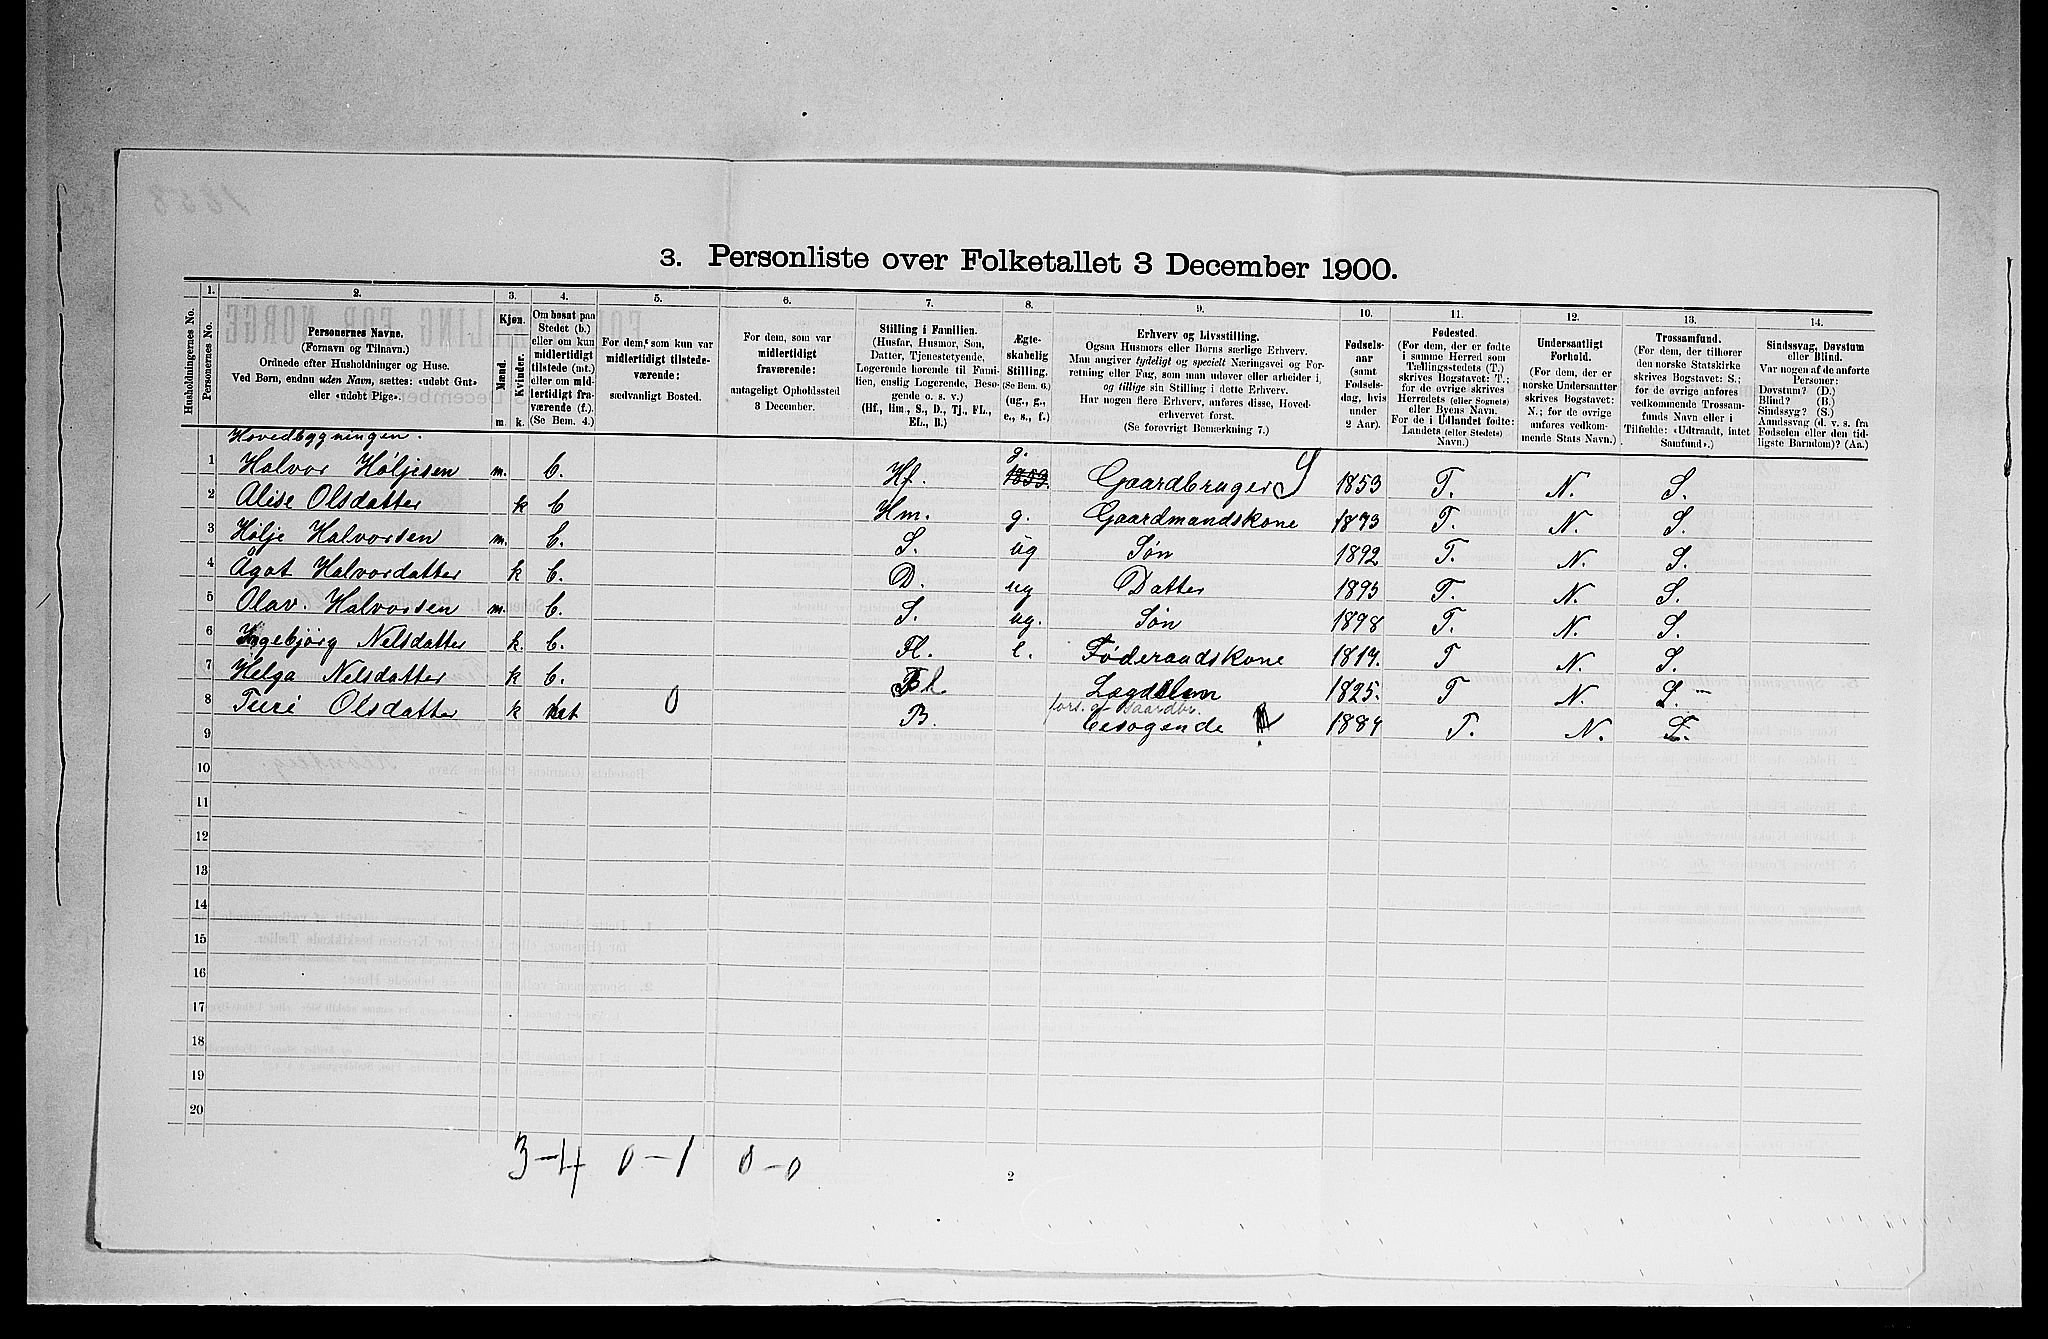 3. Personliste over Folketallet 3 December 1900.
Husholdningernes No.
1.
Personernes No.
2.
Personernes Navne.
(Fornavn og Tilnavn.)
Ordnede efter Husholdninger og Huse.
Ved Børn, endnu uden Navn, sættes: «udøbt Gut»
eller «udøbt Pige».
3.
Kjøn.
Mænd.
Kvinder.
m. k.
4.
Om bosat paa
Stedet (b.)
eller om kun
midlertidigt
tilstede (mt.)
eller om mid-
lertidigt fra-
værende (f.).
(Se Bem. 4.)
5.
For dem, som kun var
midlertidigt tilstede-
værende:
sædvanligt Bosted.
6.
For dem, som var
midlertidigt
fraværende:
antageligt Opholdssted
3 December.
7.
Stilling i Familien.
(Husfar, Husmor, Søn,
Datter, Tjenestetyende,
Logerende hørende til Fami-
lien, enslig Logerende, Besø-
gende o. s. v.)
(Hf., Hm., S., D., Tj., FL.,
EL., B.)
8.
Ægte-
skabelig
Stilling.
(Se Bem. 6.)
(ug., g.,
e., s., f.)
9.
Erhverv og Livsstilling.
Ogsaa Husmors eller Børns særlige Erhverv.
Man angiver tydeligt og specielt Næringsvei og For-
retning eller Fag, som man udøver eller arbeider i,
og tillige sin Stilling i dette Erhverv.
Har nogen flere Erhverv, anføres disse, Hoved-
erhvervet først.
(Se forøvrigt Bemærkning 7.)
10.
Fødsels-
aar
(samt
Fødsels-
dag, hvis
under
2 Aar).
11.
Fødested.
(For dem, der er fødte
i samme Herred som
Tællingsstedets (T.)
skrives Bogstavet: T.;
for de øvrige skrives
Herredets (eller Sognets)
eller Byens Navn.
For de i Udlandet fødte:
Landets (eller Stedets)
Navn.)
12.
Undersaatligt
Forhold.
(For dem, der er
norske Undersaatter
skrives Bogstavet:
N.; for de øvrige
anføres vedkom-
mende Stats Navn.)
13.
Trossamfund.
(For dem, der tilhører
den norske Statskirke
skrives Bogstavet: S.;
for de øvrige anføres
vedkommende Trossam-
funds Navn eller i
Tilfælde: «Udtraadt, intet
Samfund».)
14.
Sindssvag, Døvstum
eller Blind.
Var nogen af de anførte
Personer:
Døvstum? (D.)
Blind? (B.)
Sindssyg? (S.)
Aandssvag (d. v. s. fra
Fødselen eller den tid-
ligste Barndom)? (Aa.)
Hovedbygningen.
1 Halvor Høljesen m. b. Hf. g. 1853. Gaardbruger 1853 T. N. S.
2 Alise Olsdatter k b Hm. g. Gaardmandskone 1873 T. N. S.
3 Hølje Halvorsen m. b. S. ug Søn 1892 T. N. S.
4 Agot Halvordatter k b. D. ug Datter 1895 T. N. S.
5 Olav. Halvorsen m. b. S. ug. Søn 1898 T. N. S.
6 Ingebjørg Nelsdatter k. b. Fl. e. Føderaadskone 1817. T N. S.
7 Helga Nelsdatter k b. Fl Lægdslem 1825. T N. S.
8 Turi Olsdatter k mt 0 B. fors. af Gaardbr.
besøgende 1884 T. N. S.
9
10
11
12
13
14
15
16
17
18
19
20
3-4 0-1 0-0
2